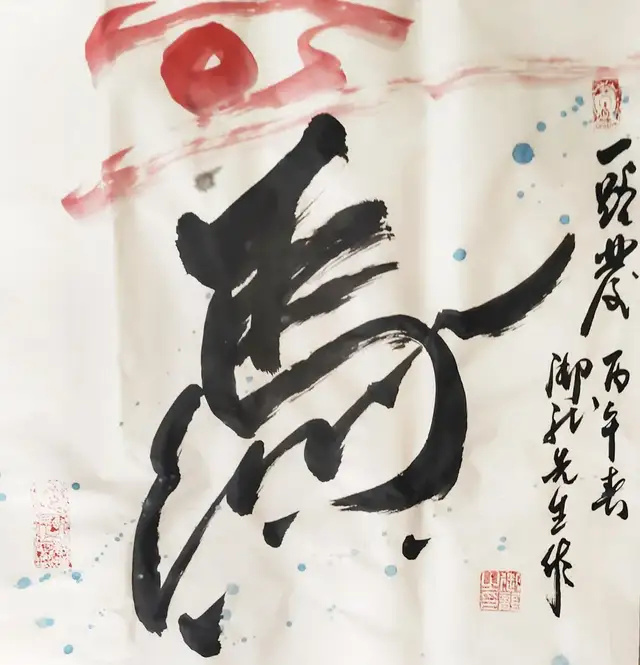 馬
一路發
丙午春
御龙先生作